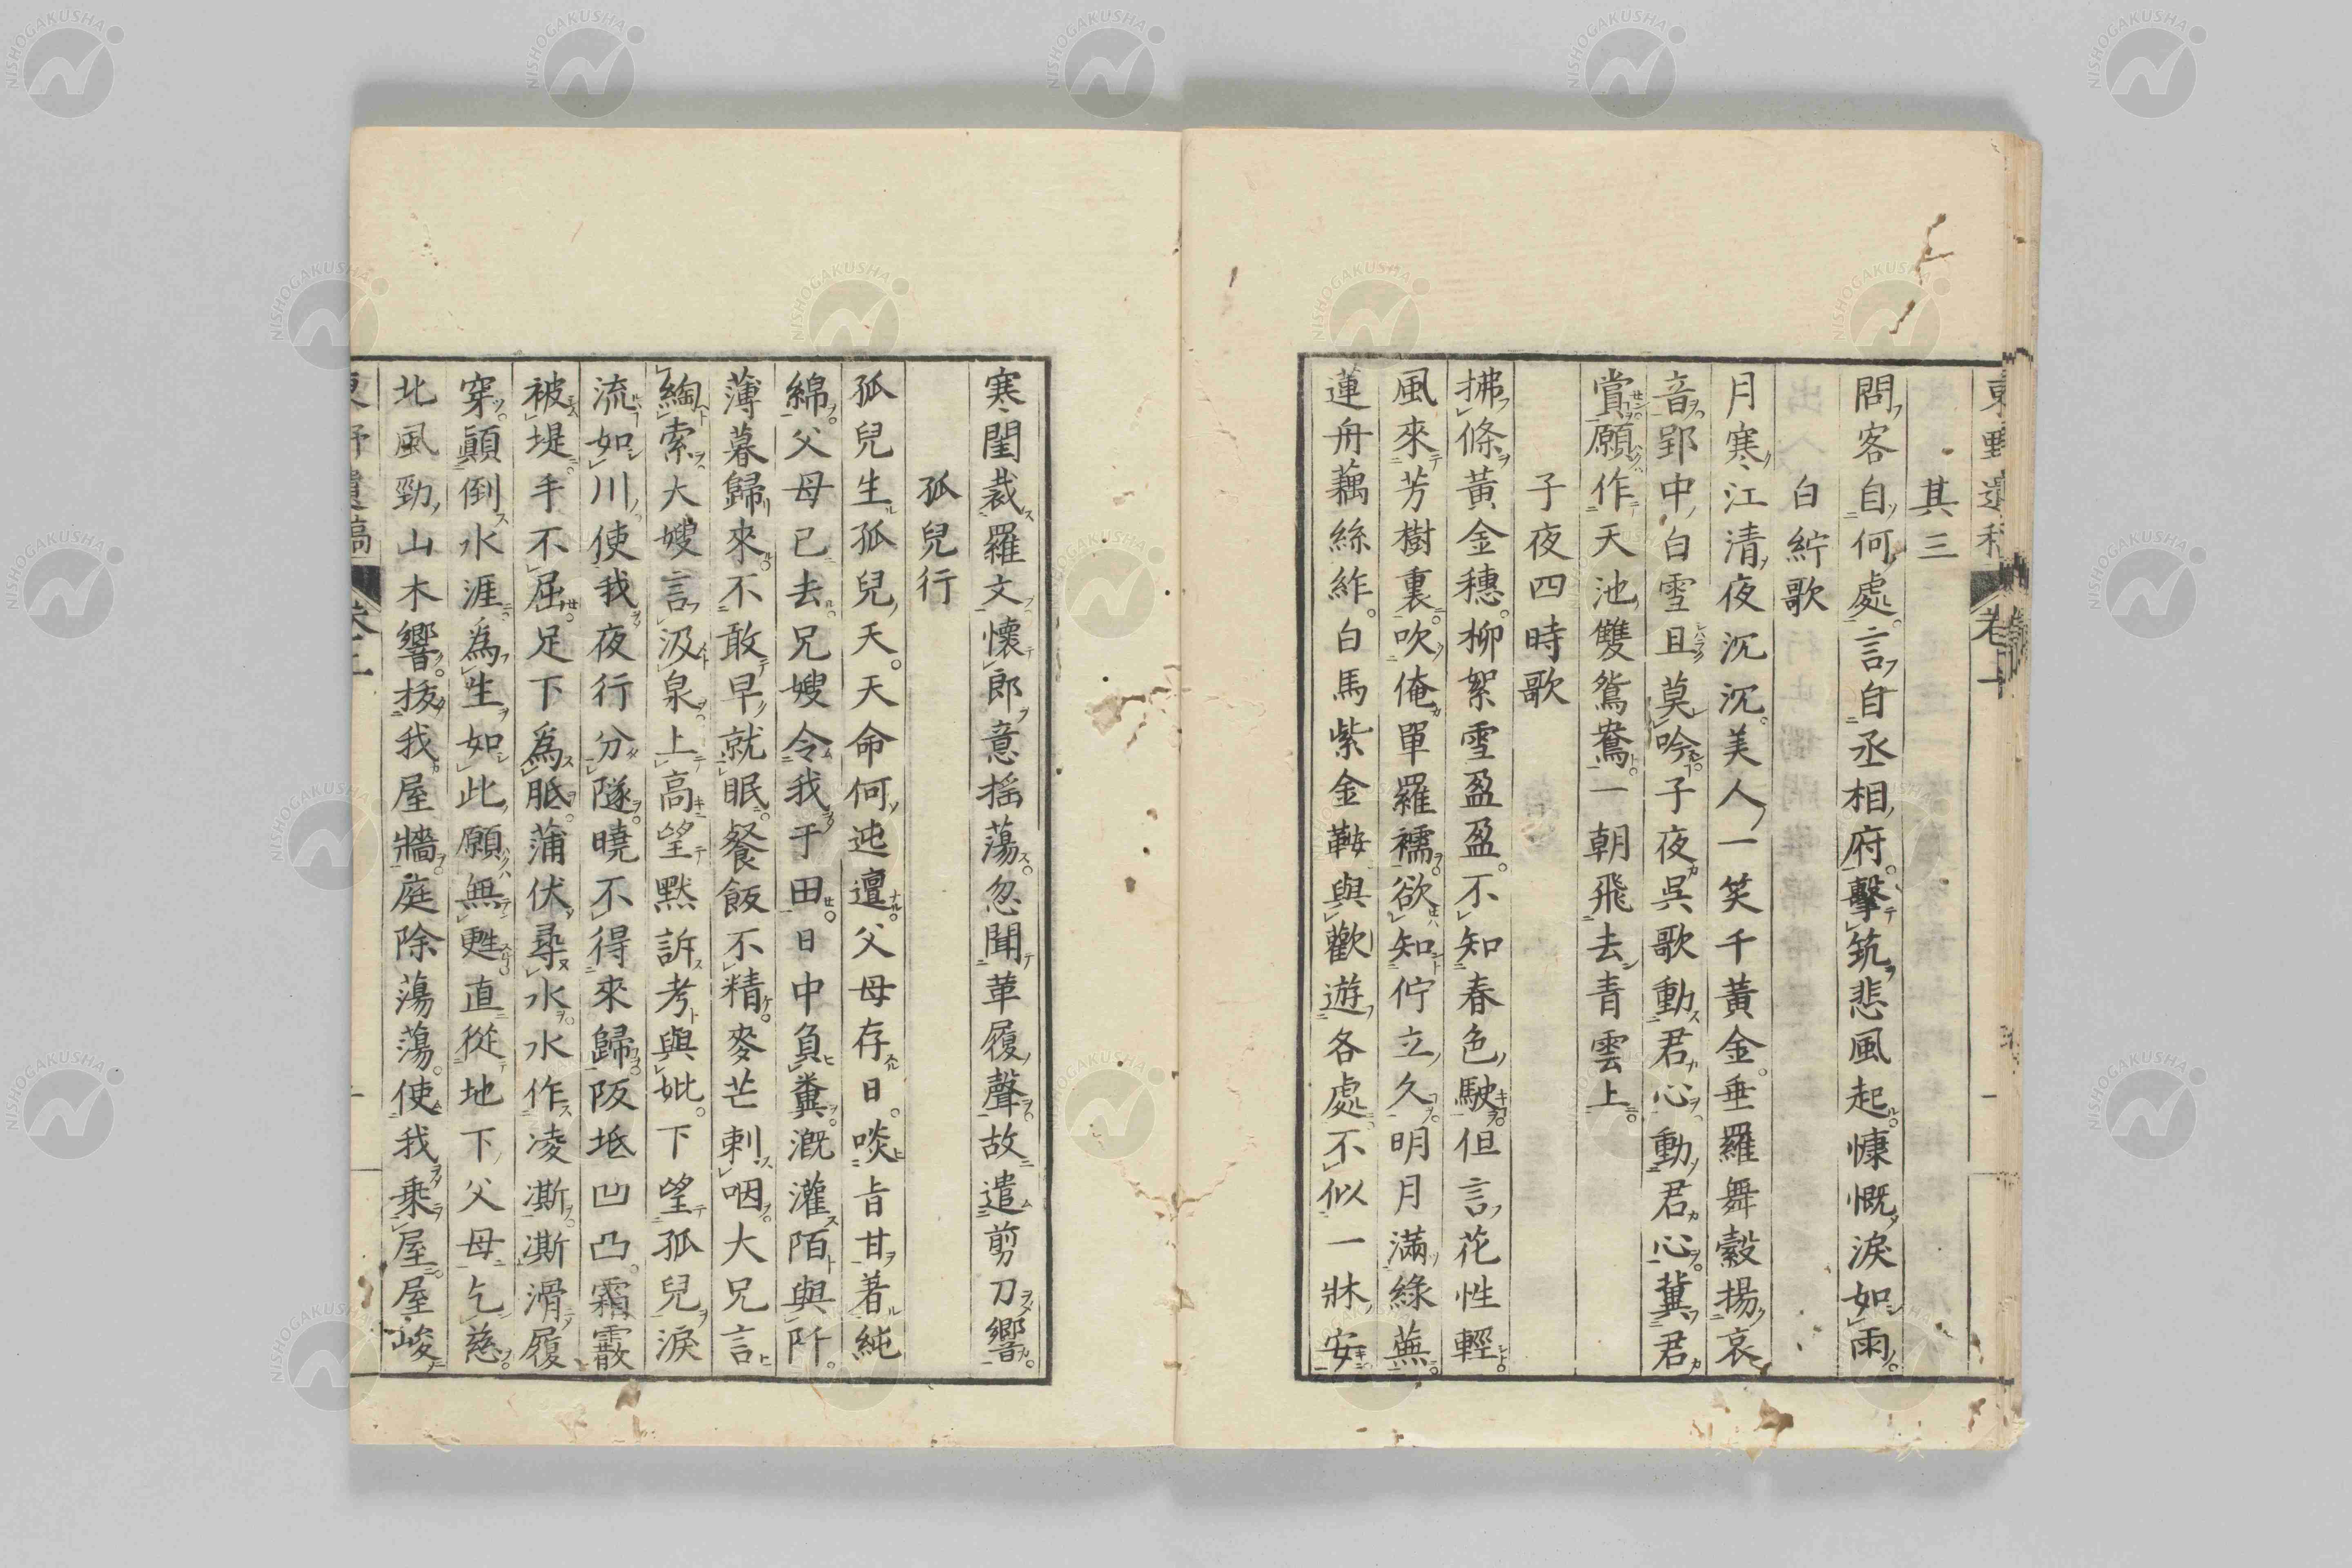 東野遺稿 卷上
其三
問客自何處。言自丞相府。擊筑悲風起。慷慨淚如雨。
白紵歌
月寒江清夜沉沉。美人一笑千黃金。垂羅舞縠揚哀
音。郢中白雪且莫吟。子夜吳歌動君心。動君心。冀君
賞。願作天池雙鴛鴦。一朝飛去青雲上。
子夜四時歌
拂條黃金穗。柳絮雪盈盈。不知春色駛。但言花性輕。
風來芳樹裏。吹俺單羅襦。欲知佇立久。明月滿綠蕪。
蓮舟藕絲䋏。白馬紫金鞍。與歡遊各處。不似一牀安。
寒閨裁羅文。懷郎意搖蕩。忽聞革履聲。故遣剪刀響。
孤兒行
孤兒生。孤兒夭。天命何迍邅。父母存日。啖旨甘著純
綿。父母已去。兄嫂令我于田。日中負糞。溉灌陌與阡。
薄暮歸來。不敢早就眠。餐飯不精。麥芒刺咽。大兄言
綯索。大嫂言汲泉。上高望默訴考與妣。下望孤兒淚
流如川。使我夜行分隧。曉不得來歸。阪坻凹凸。霜霰
被堤。手不屈。足下為胝。蒲伏尋水。水作凌凘。凘滑履
穿。顚倒水涯。為生如此。願無甦。直從地下父母乞慈。
北風勁。山木響。拔我屋牆。庭除蕩蕩。使我乗屋。屋峻
東野遺稿 卷上